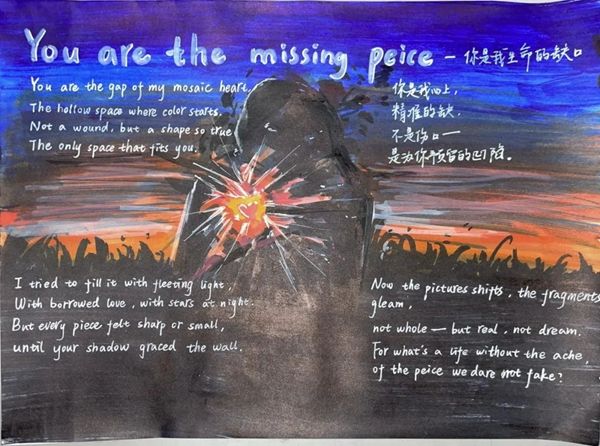 You are the missing peice — 你是我生命的缺口
You are the gap of my mosaic heart,
The hollow space where color starts.
Not a wound, but a shape so true
The only space that fits you.
你是我心上,
精准的缺,
不是伤口—
是为你预留的凹陷。
I tried to fill it with fleeting light,
With borrowed love, with stars at night.
But every piece felt sharp or small,
until your shadow graced the wall.
Now the pictures shifts, the fragments
gleam,
not whole — but real, not dream.
For what's a life without the ache,
of the peice we dare not fake?